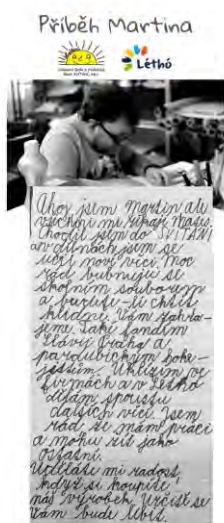 Příběh Martina
Léthó
Ahoj jsem Martin ale
všichni mi říkají Maty
chodil jsem do SVÍTÁNÍ
a v dílnách jsem se
učil nové věci. Moc
rád bubnuji se
školním souborem
a budete-li chtít
klidně Vám zahra-
jeme. Také fandím
Slávy Praha a
pardubickým hoke-
jistům. Uklízím ve
firmách a v Léthó
dělám spoustu
dalších věcí. Jsem
rád, že mám práci
a mohu žít jako
ostatní.
Uděláte mi radost
když si koupíte
náš výrobek. Určitě se
Vám bude líbit.